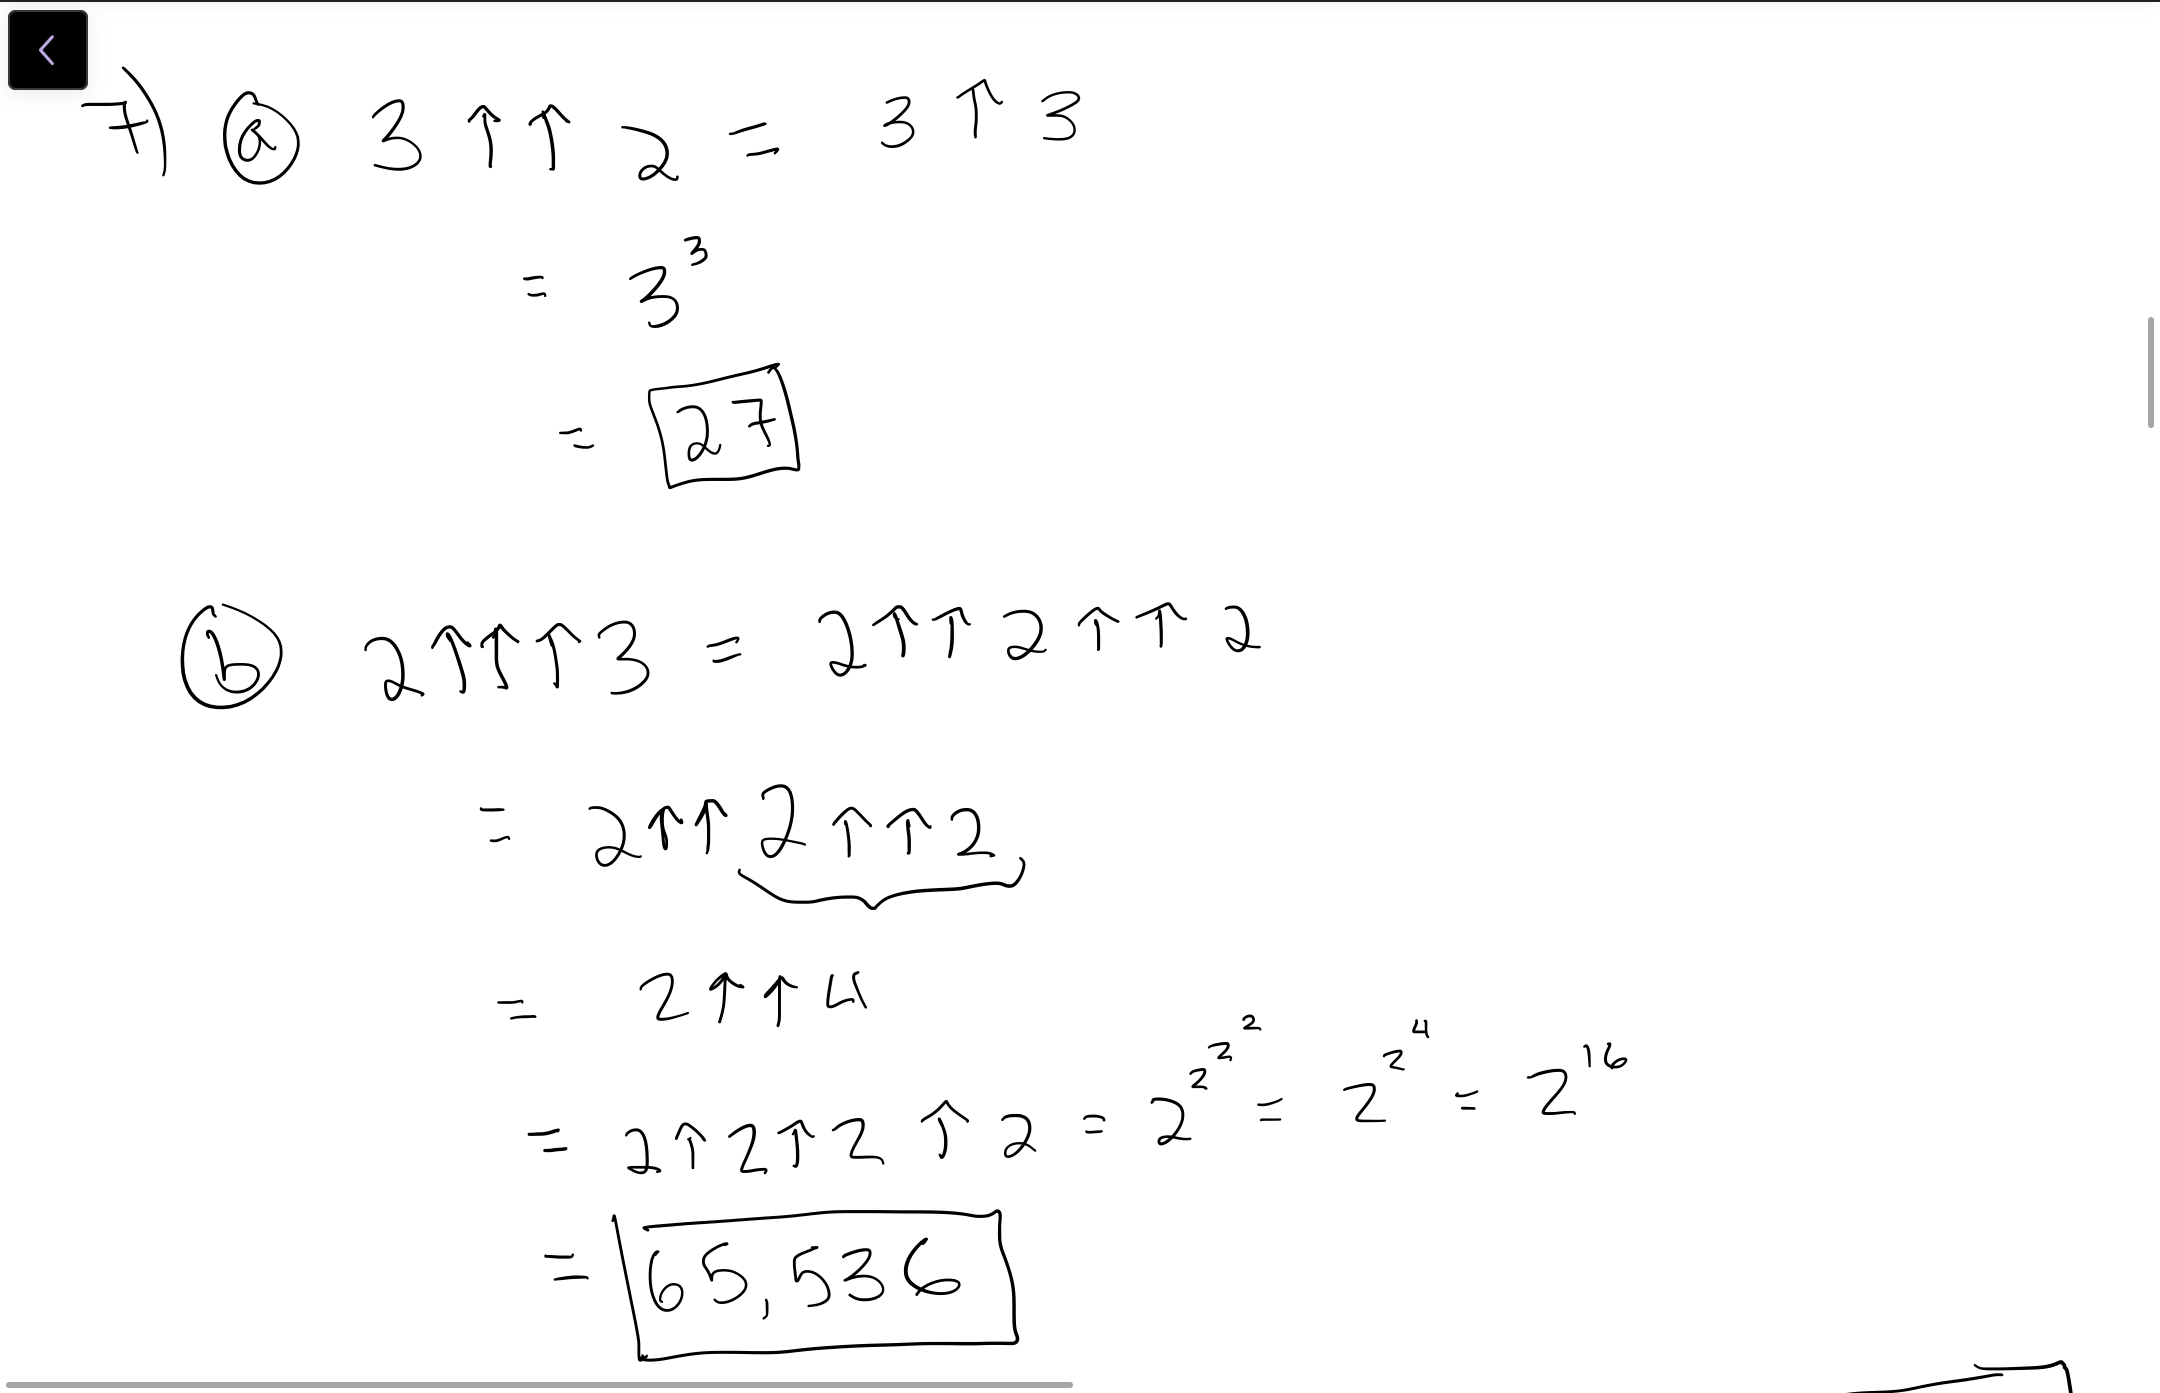 7) ⓐ 3 ↑↑ 2 = 3 ↑ 3
= 3³
= 27
ⓑ 2↑↑↑3 = 2↑↑2↑↑2
= 2↑↑2↑↑2
= 2↑↑4
= 2↑2↑2↑2 = 2^2^2^2 = 2^2^4 = 2^16
= 65,536